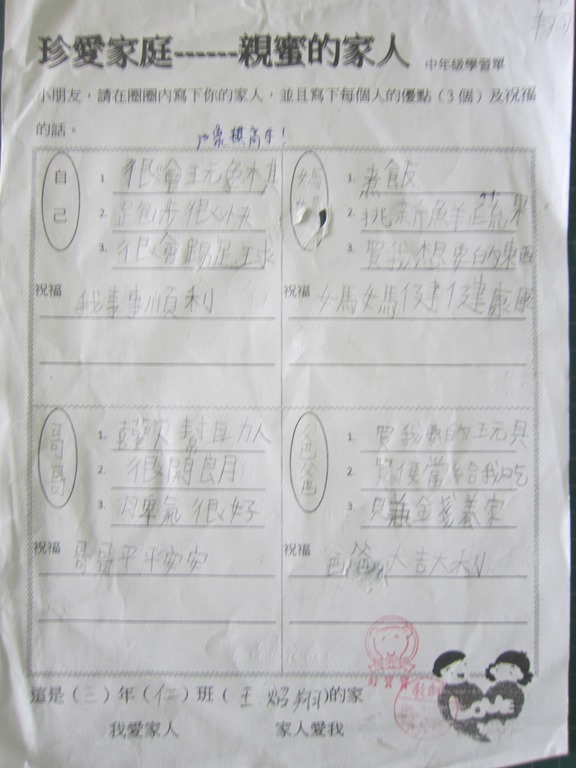 珍愛家庭------親蜜的家人 中年級學習單
小朋友，請在圈圈內寫下你的家人，並且寫下每個人的優點（3個）及祝福
的話。
象棋高手！
自己
1. 很會玩象棋
2. 跑步很快
3. 很會踢足球
祝福
我事事順利
媽媽
1. 煮飯
2. 挑新魚羊蔬果
3. 買我想要的東西
祝福
媽媽健健康康
哥哥
1. 喜歡幫助人
2. 很開朗
3. 脾氣很好
祝福
哥哥平平安安
爸爸
1. 買我要的玩具
2. 買便當給我吃
3. 賺金錢養家
祝福
爸爸大吉大利
好寶寶
這是（三）年（仁）班（王 炤翔）的家
我愛家人 家人愛我